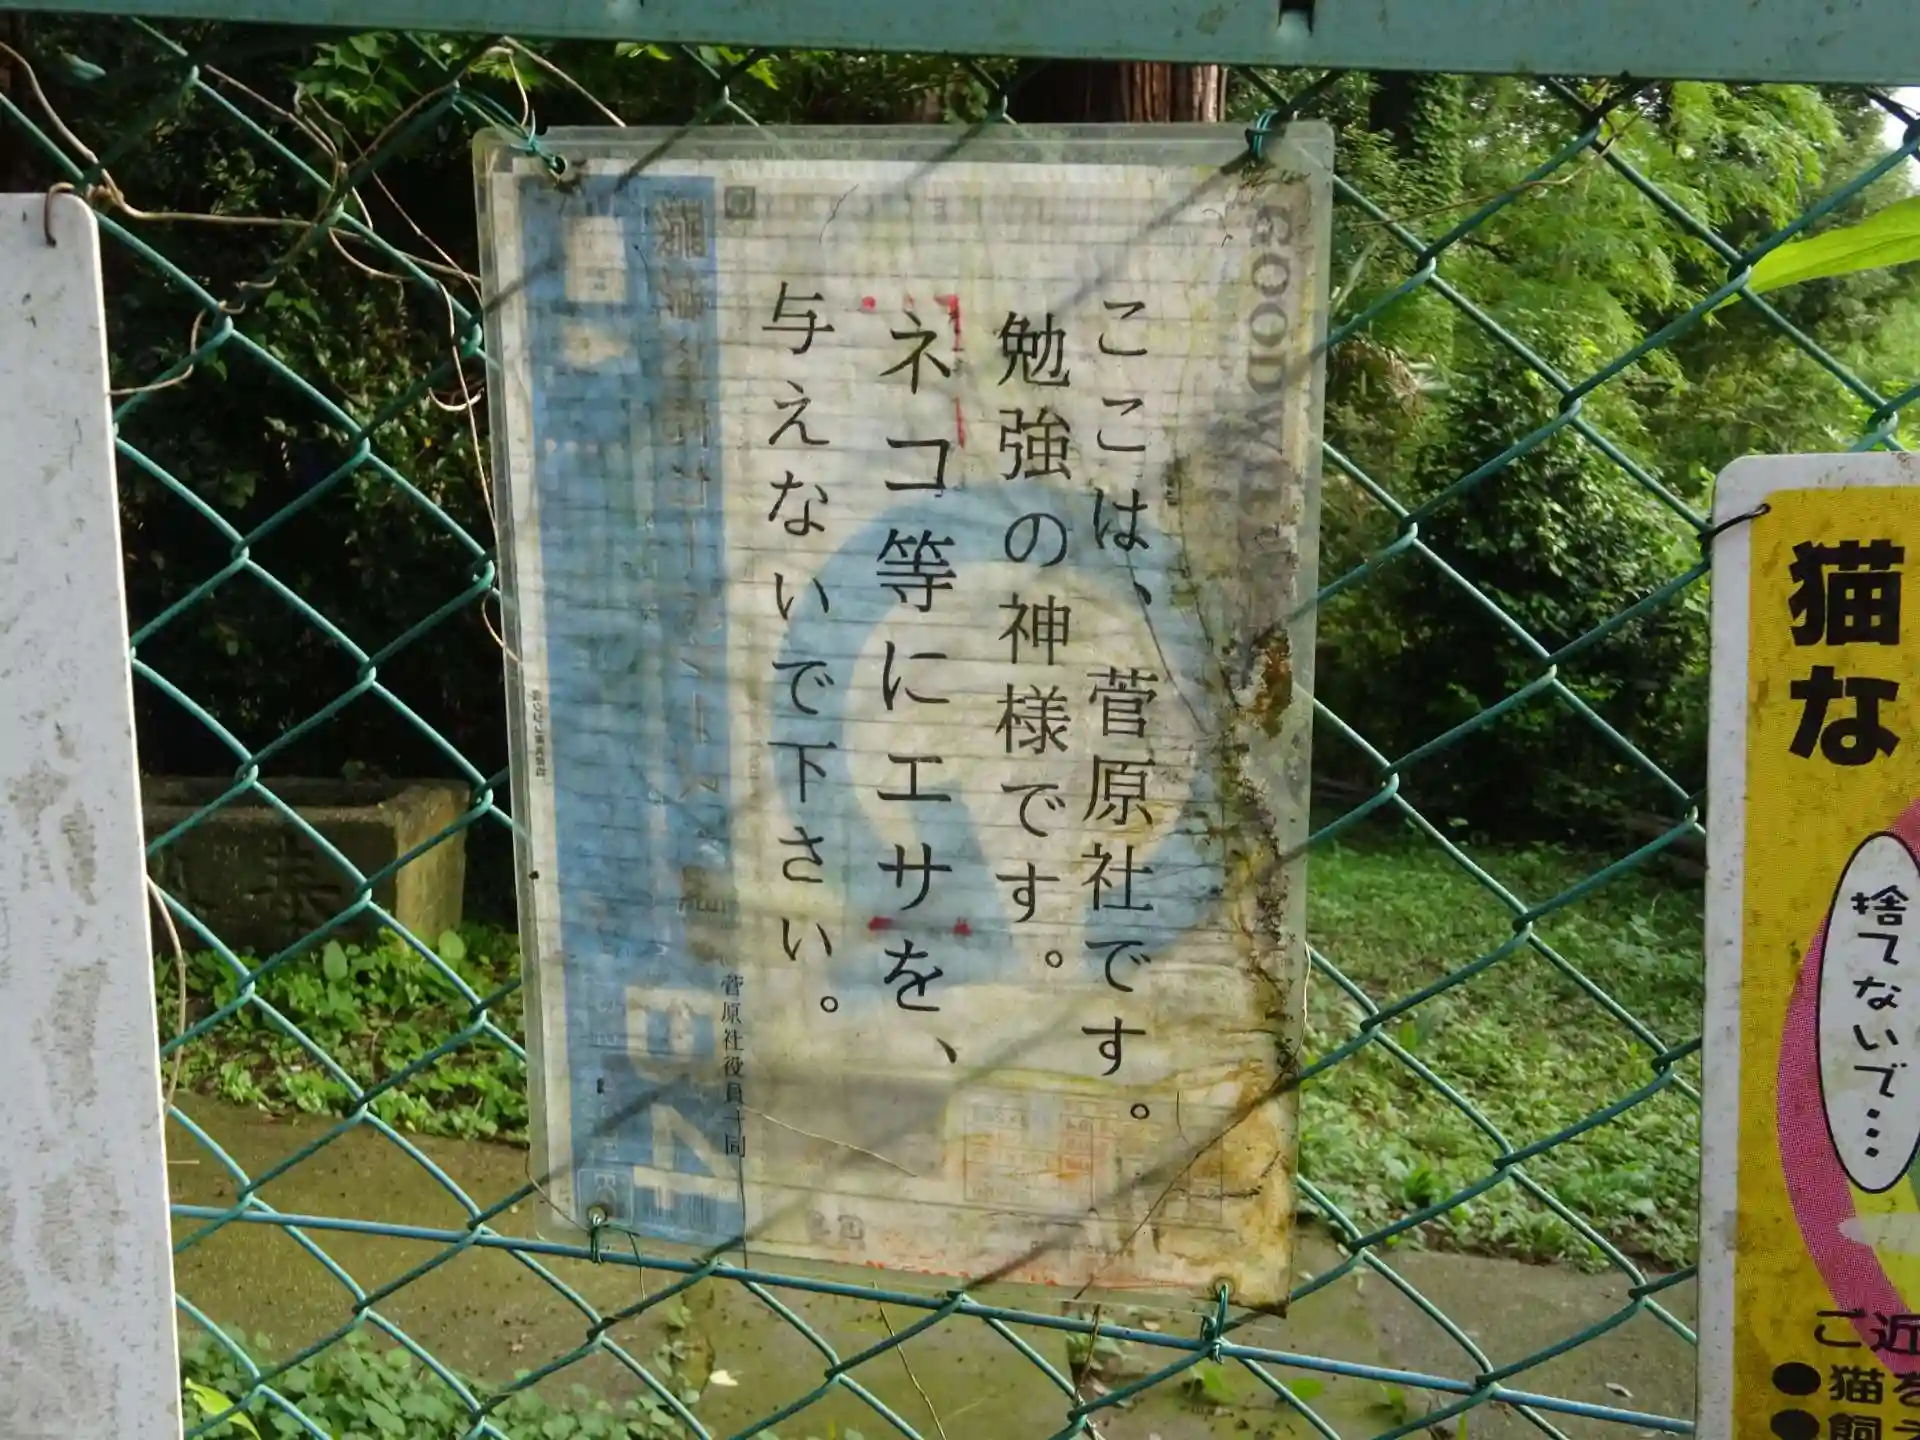 ここは、菅原社です。
勉強の神様です。
ネコ等にエサを、
与えないで下さい。
菅原社役員一同
GOODWI
B4
猫
な
捨てないで…
ご近
●猫を
●飼え
奉